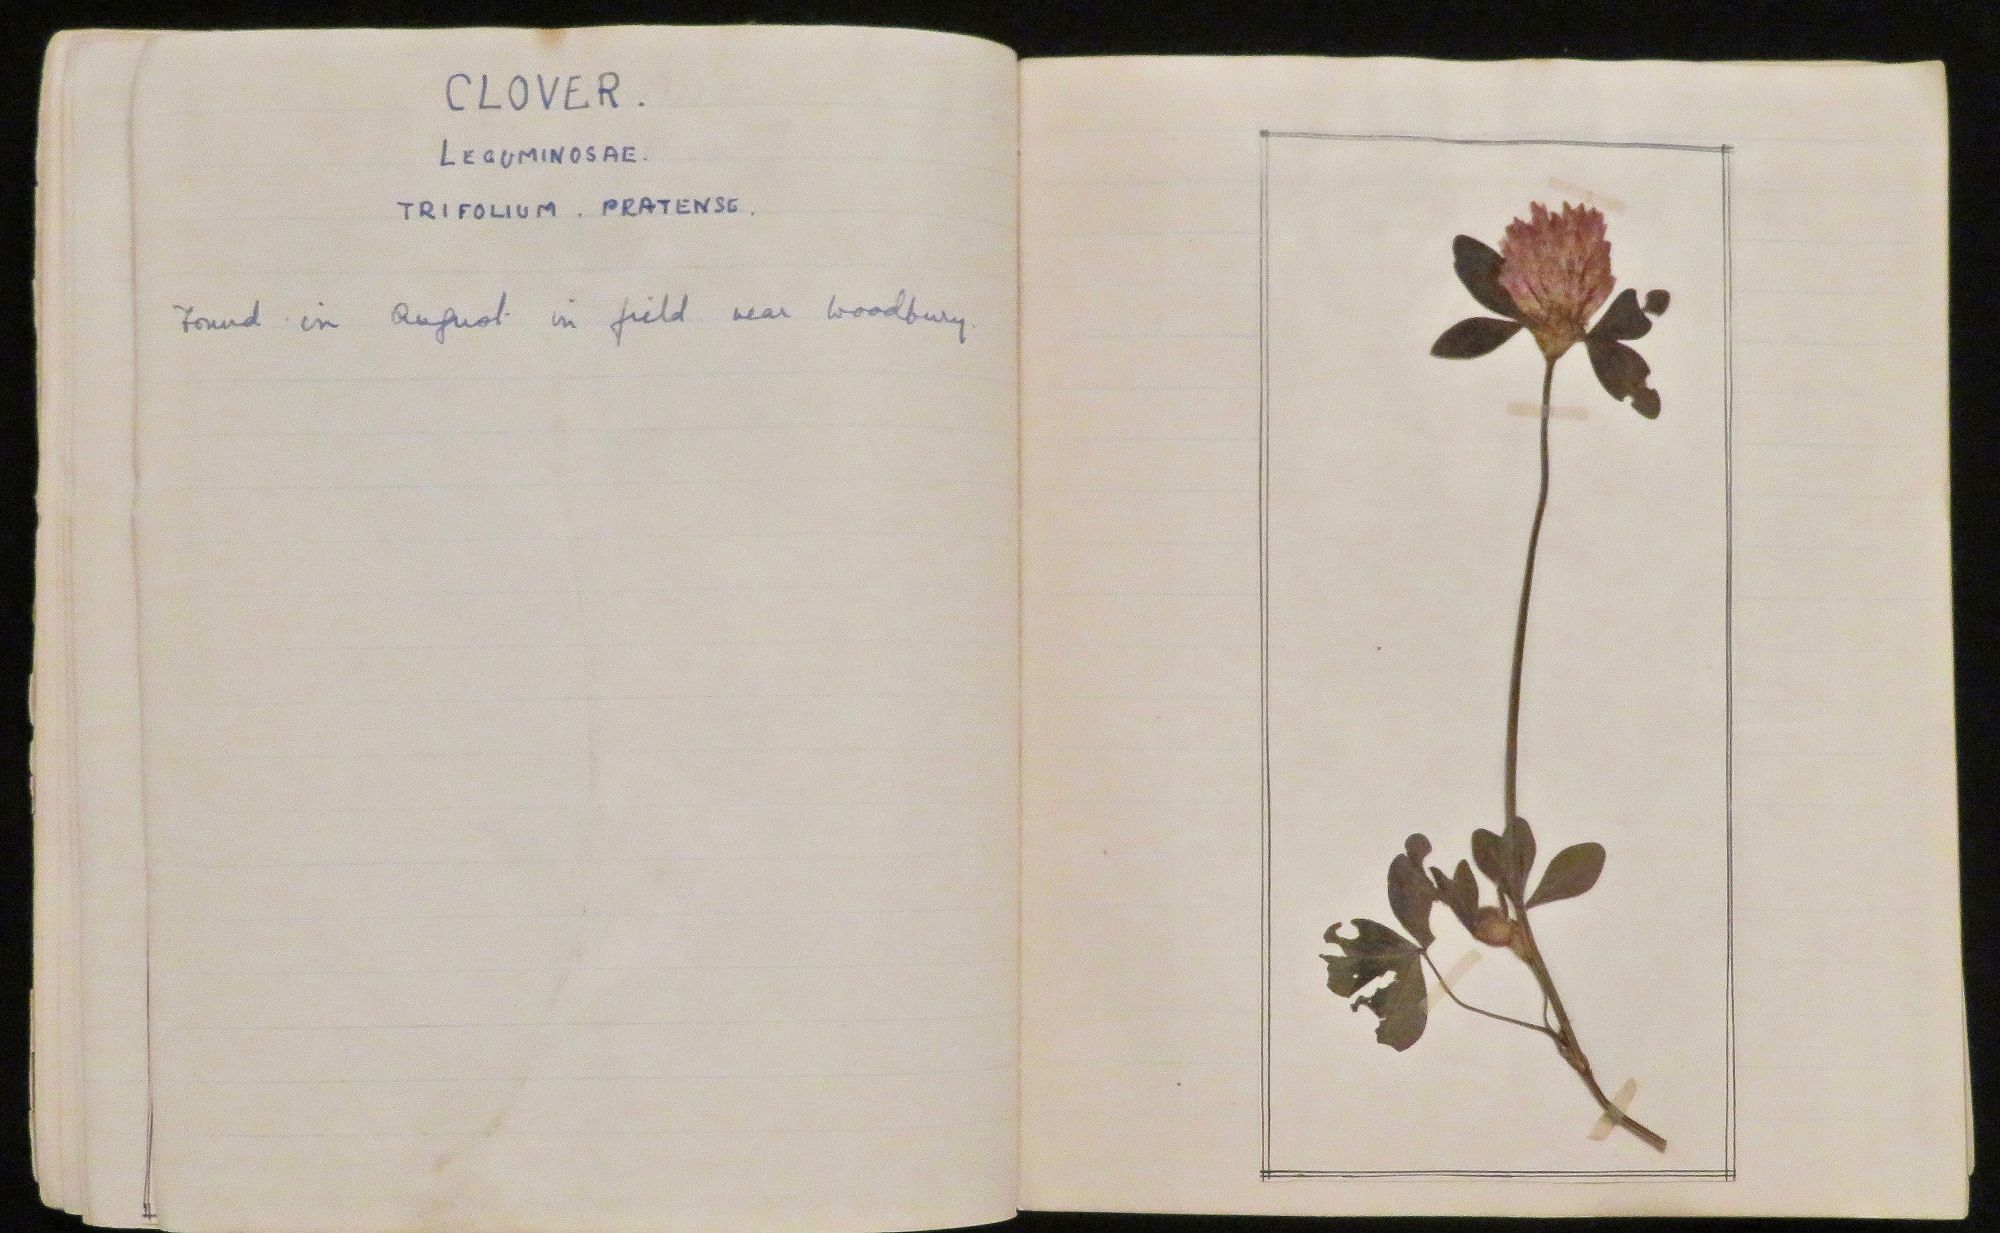 CLOVER.
LEGUMINOSAE.
TRIFOLIUM. PRATENSE.
Found in August in field near Woodbury.